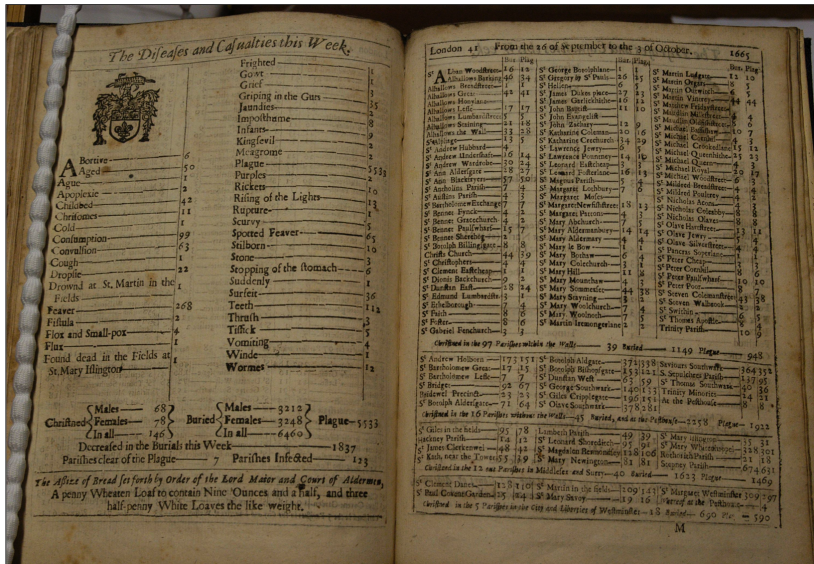 The Diseases and Casualties this Week.
Abortive 6
Aged 50
Ague 1
Apoplexie 2
Childbed 42
Chrisomes 11
Cold 1
Consumption 99
Convulsion 63
Cough 1
Dropsie 22
Drownd at St. Martin in the Fields 1
Feaver 268
Fistula 2
Flox and Small-pox 4
Flux 1
Found dead in the Fields at
St. Mary Islington 1
Frighted 1
Gowt 1
Grief 1
Griping in the Guts 35
Jaundies 2
Imposthume 8
Infants 9
Kingsevil 2
Meagrome 2
Plague 5533
Purples 2
Rickets 10
Rising of the Lights 13
Rupture 1
Scurvy 5
Spotted Feaver 65
Stilborn 10
Stone 3
Stopping of the stomach 6
Suddenly 1
Surfeit 36
Teeth 112
Thrush 3
Tissick 5
Vomiting 4
Winde 1
Wormes 12
Christned Males 68 Females 78 In all 146
Buried Males 3212 Females 3248 In all 6460
Plague 5533
Decreased in the Burials this Week 1837
Parishes clear of the Plague 7 Parishes Infected 123
The Assize of Bread set forth by Order of the Lord Maior and Court of Aldermen,
A penny Wheaten Loaf to contain Nine Ounces and a half, and three
half-penny White Loaves the like weight.
London 41 From the 26 of September to the 3 of October. 1665
Bur. Plag. Bur. Plag. Bur. Plag.
St Alban Woodstreet 16 12
Alhallows Barking 46 34
Alhallows Breadstreet 1 1
Alhallows Great 42 41
Alhallows Honylane
Alhallows Lesse 17 17
Alhallows Lumbardstreet
Alhallows Staining 21 18
Alhallows the Wall 33 28
St Alphage 13 5
St Andrew Hubbard 4
St Andrew Undershaft 16 14
St Andrew Wardrobe 30 24
St Ann Aldersgate 28 27
St Ann Blackfryers 57 50
St Antholins Parish 7 4
St Austins Parish 4 3
St Bartholomew Exchange 7 7
St Bennet Fynck 4 2
St Bennet Gracechurch 4 2
St Bennet Paulswharf 15 7
St Bennet Sherehog 2
St Botolph Billingsgate 8 8
Christs Church 44 39
St Christophers 4 4
St Clement Eastcheap 1 1
St Dionis Backchurch 2 2
St Dunstan East 28 24
St Edmund Lumbardstr. 3 1
St Ethelborough 7 4
St Faith 8 6
St Foster 8 6
St Gabriel Fenchurch 3 3
St George Botolphlane 1 1
St Gregory by St Pauls 26 25
St Hellens 6 5
St James Dukes place 27 23
St James Garlickhithe 16 12
St John Baptist 11 10
St John Evangelist
St John Zachary 12 9
St Katharine Coleman 20 16
St Katharine Creechurch 34 29
St Lawrence Jewry 6 5
St Lawrence Pountney 14
St Leonard Eastcheap 3 3
St Leonard Fosterlane 16 13
St Magnus Parish
St Margaret Lothbury 7
St Margaret Moses
St Margaret Newfishstreet 18 13
St Margaret Pattons
St Mary Abchurch
St Mary Aldermanbury 14 14
St Mary Aldermary
St Mary le Bow 1 1
St Mary Bothaw 6 4
St Mary Colechurch 3 1
St Mary Hill 11 8
St Mary Mounthaw 4 3
St Mary Sommerset 44 38
St Mary Stayning 3 2
St Mary Woolchurch
St Mary Woolnoth
St Martin Iremongerlane 2 2
St Martin Ludgate 12 10
St Martin Orgars 8 5
St Martin Outwitch 6 5
St Martin Vintrey 44
St Matthew Fridaystreet
St Mildred Breadstreet
St Mildred Poultrey
St Nicholas Acons
St Nicholas Coleabby
St Nicholas Olaves
St Olave Hartstreet
St Olave Jewry
St Olave Silverstreet
St Pancras Soperlane
St Peter Cheap
St Peter Cornhil
St Peter Paulswharf 10 10
St Peter Poor
St Steven Colemanstreet 43 38
St Steven Walbrook
St Swithin
St Thomas Apostle
Trinity Parish
Christned in the 97 Parishes within the Walls 39 Buried 1149 Plague 948
St Andrew Holborn 173 151
St Bartholomew Great 17 15
St Bartholomew Lesse 7 7
St Bridget 92 67
Bridewel Precinct 23 23
St Botolph Aldersgate 71 64
St Botolph Aldgate 372 338
St Botolph Bishopsgate 153 121
St Dunstan West 63 59
St George Southwark 140 133
St Giles Cripplegate 196 151
St Olave Southwark 378 281
Saviours Southwark 364 352
St Sepulchres Parish
St Thomas Southwark 40 36
Trinity Minories 24 21
At the Pesthouse 8 8
Christned in the 16 Parishes without the Walls 45 Buried, and at the Pesthouse 2258 Plague 1922
St Giles in the fields 95 78
Hackney Parish 14 12
St James Clerkenwel 48 42
St Kath. near the Tower 55 39
Lambeth Parish 49 39
St Leonard Shoreditch 97 92
St Magdalen Bermondsey 128 106
St Mary Newington 81 81
St Mary Islington 55 31
St Mary Whitechappel 328 301
Rothorith Parish 21 18
Stepney Parish 674 631
Christned in the 12 out Parishes in Middlesex and Surry 40 Buried 1623 Plague 1469
St Clement Danes 128 110
St Paul Covent Garden 25 24
St Martin in the fields 209 143
St Mary Savoy 19 16
St Margaret Westminster 309 297
Christned in the 5 Parishes in the City and Liberties of Westminster 18 Buried 690 Plague 590
M